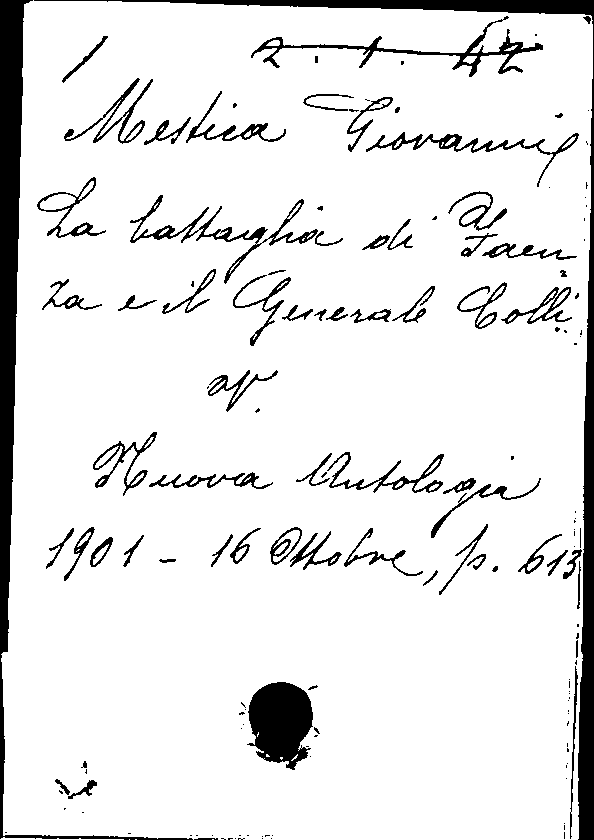 1 2.1.42
Mestica Giovanni
La battaglia di Faen=
za e il Generale Colli
v.
Nuova Antologia
1901 - 16 Ottobre, p. 613